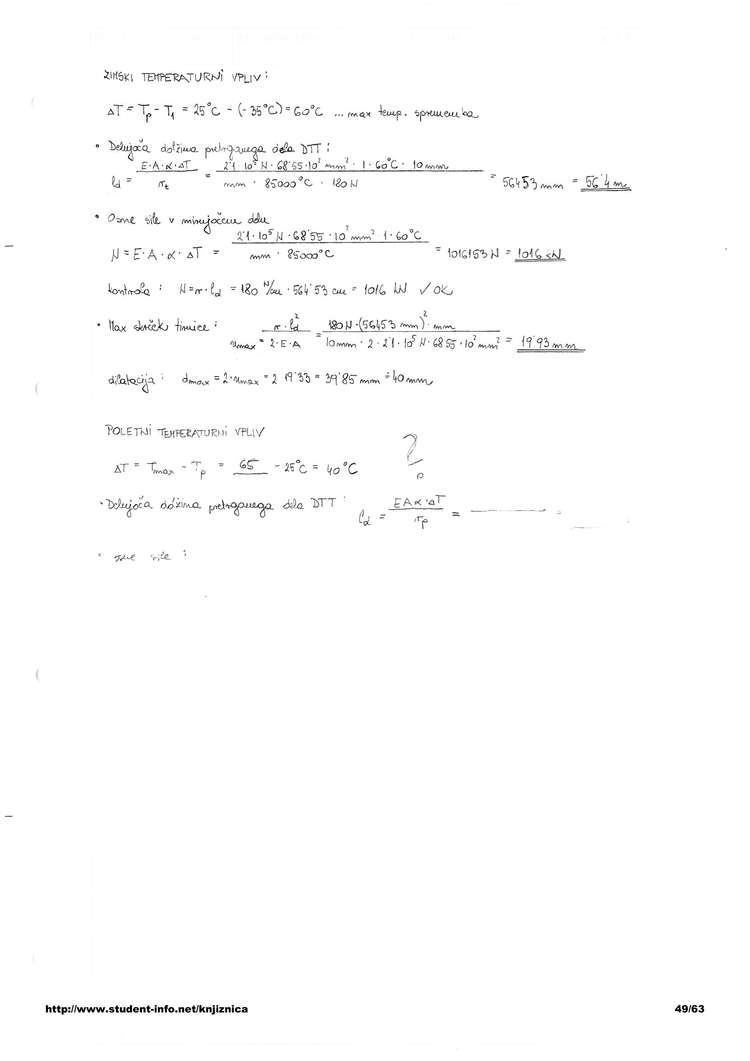 ZIMSKI TEMPERATURNI VPLIV :
ΔT = Tp - T1 = 25°C - (-35°C) = 60°C ... max temp. sprememba
• Delujoča dolžina pretrganega dela DTT :
ld = E·A·α·ΔT / rt = 2'1·10⁵ N · 68'55·10² mm² · 1·60°C · 10 mm / mm · 85000°C · 180 N = 56453 mm = 56'4 m
• Osne sile v mirujočem delu
N = E·A·α·ΔT = 2'1·10⁵ N · 68'55·10² mm² 1·60°C / mm · 85000°C = 1016153 N = 1016 kN
kontrola : N = r·ld = 180 N/cm · 5645'3 cm = 1016 kN ✓ OK
• Max skrček tirnice : umax = r·ld² / 2·E·A = 180 N·(56453 mm)²· mm / 10 mm · 2 · 2'1·10⁵ N · 68'55·10² mm² = 19'93 mm
dilatacija : dmax = 2·umax = 2 19'33 = 39'85 mm ≐ 40 mm
POLETNI TEMPERATURNI VPLIV
ΔT = Tmax - Tp = 65 - 25°C = 40°C
• Delujoča dolžina pretrganega dela DTT : ld = EAα·ΔT / rp = =
• sile :
http://www.student-info.net/knjiznica
49/63